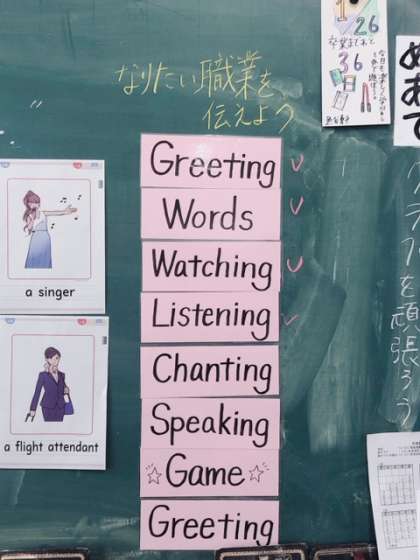 なりたい職業を
伝えよう
Greeting
Words
Watching
Listening
Chanting
Speaking
☆Game☆
Greeting
a singer
a flight attendant
1
26
卒業まであと
36
めあて
クラブを頑張ろう